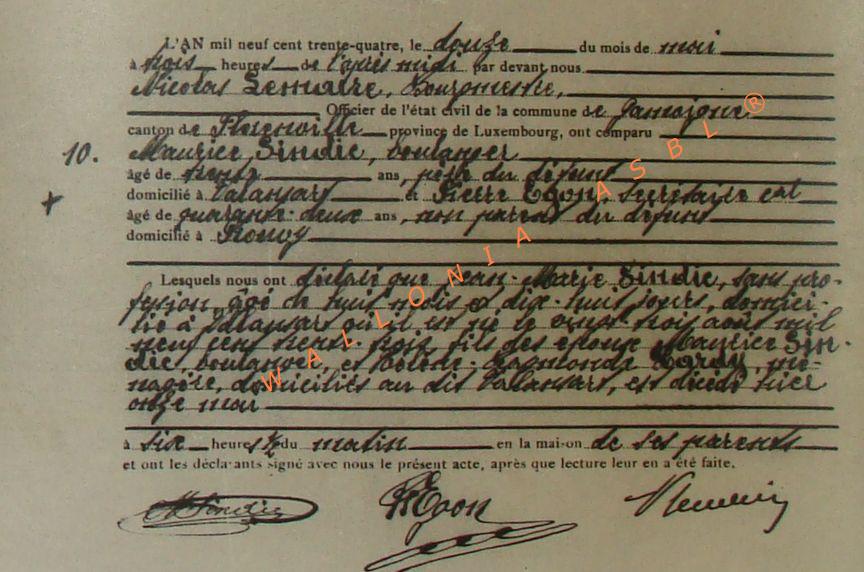 L'AN mil neuf cent trente-quatre, le douze du mois de mai
à trois heures de l'après midi par devant nous
Nicolas Lemaire, Bourgmestre,
Officier de l'état civil de la commune de Jamoigne
canton de Florenville province de Luxembourg, ont comparu
10. Maurice Sindic, boulanger
âgé de trente ans, père du défunt
domicilié à Valansart et Pierre Egon, secrétaire cal
âgé de quarante-deux ans, non parent du défunt
domicilié à Prouvy
Lesquels nous ont déclaré que Jean-Marie Sindic, sans pro-
fession, âgé de huit mois et dix-huit jours, domici-
lié à Valansart où il est né le vingt-trois août mil
neuf cent trente trois, fils des époux Maurice Sin-
dic, boulanger, et Hélène-Raymonde, mé-
nagère, domiciliés au dit Valansart, est décédé hier
onze mai
à six heures ½ du matin en la maison de ses parents
et ont les déclarants signé avec nous le présent acte, après que lecture leur en a été faite.
M Sindic Egon
WALLONIA ASBL ®